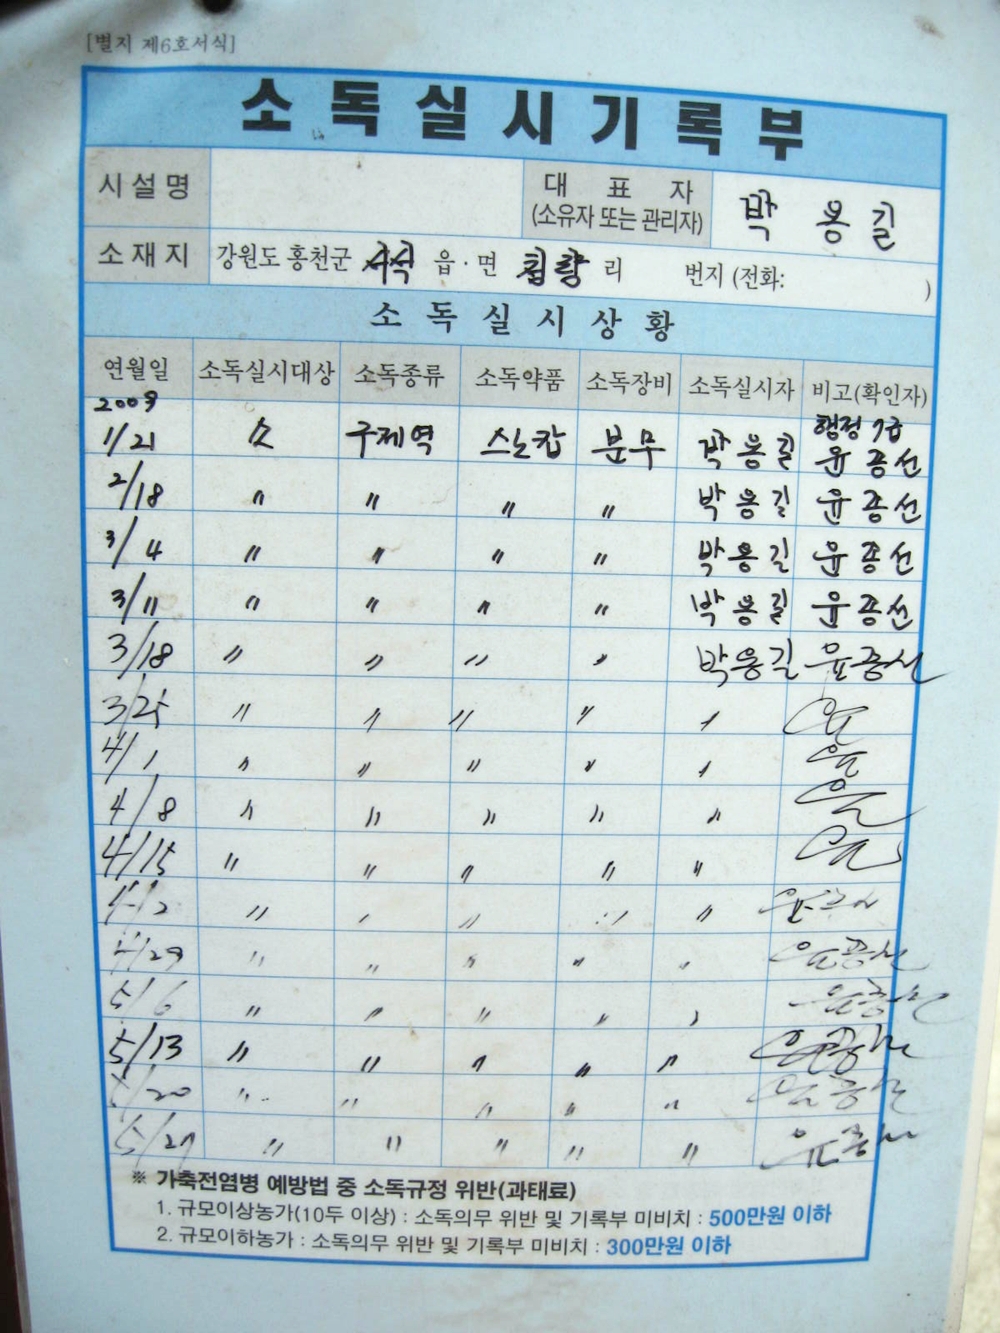 [별지 제6호서식]
소독실시기록부
시설명 대표자 (소유자 또는 관리자) 박용길
소재지 강원도 홍천군 서석 읍·면 검산 리 번지 (전화: )
소독실시상황
연월일 소독실시대상 소독종류 소독약품 소독장비 소독실시자 비고(확인자)
2009 행정7급
1/21 소 구제역 분무 박용길 윤종선
2/18 〃 〃 〃 〃 박용길 윤종선
3/4 〃 〃 〃 〃 박용길 윤종선
3/11 〃 〃 〃 〃 박용길 윤종선
3/18 〃 〃 〃 〃 박용길 윤종선
3/25 〃 〃 〃 〃 〃
4/1 〃 〃 〃 〃 〃
4/8 〃 〃 〃 〃 〃
4/15 〃 〃 〃 〃 〃
〃 〃 〃 〃 〃
4/29 〃 〃 〃 〃 〃 윤종선
5/6 〃 〃 〃 〃 〃 윤종선
5/13 〃 〃 〃 〃 〃 윤종선
5/20 〃 〃 〃 〃 〃 윤종선
5/27 〃 〃 〃 〃 〃 윤종선
※ 가축전염병 예방법 중 소독규정 위반(과태료)
1. 규모이상농가(10두 이상) : 소독의무 위반 및 기록부 미비치 : 500만원 이하
2. 규모이하농가 : 소독의무 위반 및 기록부 미비치 : 300만원 이하